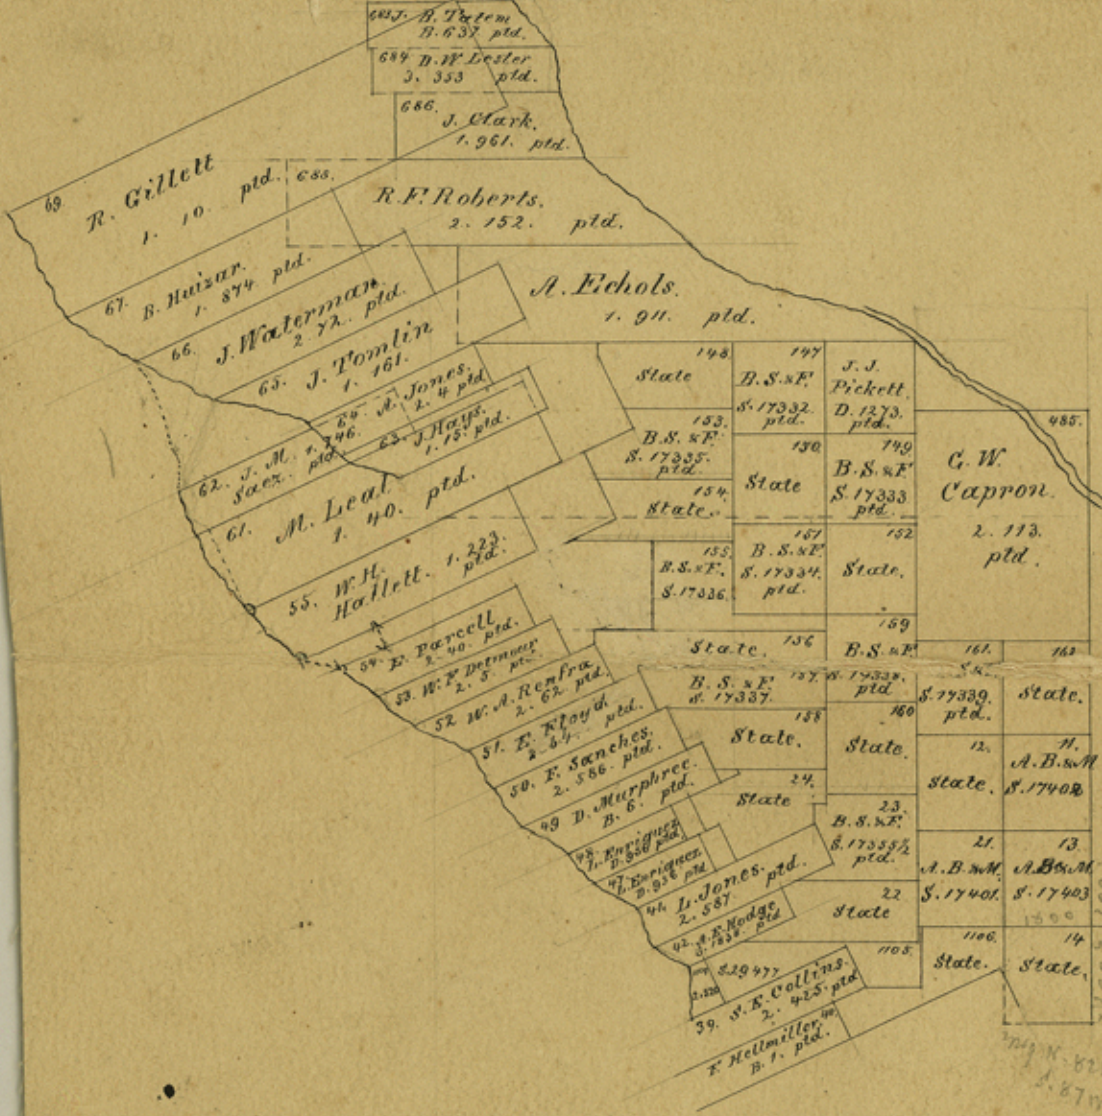 683 J. B. Tatem
B. 637 ptd.
684 D. W. Lester
3. 353 ptd.
686.
J. Clark.
1. 961. ptd.
69
R. Gillett
1. 10. ptd.
688.
R. F. Roberts.
2. 152. ptd.
67. B. Huizar.
1. 874 ptd.
66. J. Waterman.
2. 72. ptd.
A. Echols.
1. 911. ptd.
65. J. Tomlin
1. 161.
64. A. Jones.
2. 4 ptd
63. J. Hays.
1. 15. ptd.
62. J. M. 1. 246.
Saez. ptd.
61. M. Leal
1. 40. ptd.
55. W. H.
Hallett. 1. 223.
ptd.
54. E. Parcell
2. 40. ptd.
53. W. F. Detmour
2. 5.
52 W. A. Renfra
2. 62 ptd.
51. E. Floyd
2. 64. ptd.
50. F. Sanches.
2. 586. ptd.
49 D. Murphree.
B. 6. ptd.
48. L. Enriquez
D. 956 ptd.
47. L. Enriquez
D. 956 ptd
41. L. Jones. ptd.
2. 587
42. A. E. Hodge
S. ptd
S. 29477
39. S. K. Collins.
2. 425. ptd
F. Hellmiller. 40
B. 1. ptd.
148
State
147
B. S. & F.
S. 17332.
ptd.
J. J.
Pickett.
D. 1273.
ptd.
153.
B. S. & F.
S. 17335.
ptd
150
State
149
B. S. & F
S. 17333
ptd
485.
G. W.
Capron.
2. 113.
ptd.
154.
State.
155.
B. S. & F.
S. 17336
151
B. S. & F
S. 17334.
ptd.
152
State.
State. 156
B. S. & F. 157.
S. 17337.
159
B. S. & F
S. 17338.
ptd
161.
S. 17339
ptd.
162
State.
158
State.
160
State.
12.
State.
11.
A. B. & M
S. 17402
24.
State
23.
B. S. & F.
S. 17355 1/2
ptd.
21.
A. B. & M.
S. 17401.
13.
A. B & M.
S. 17403
22
State
1105.
1106.
State.
14
State.